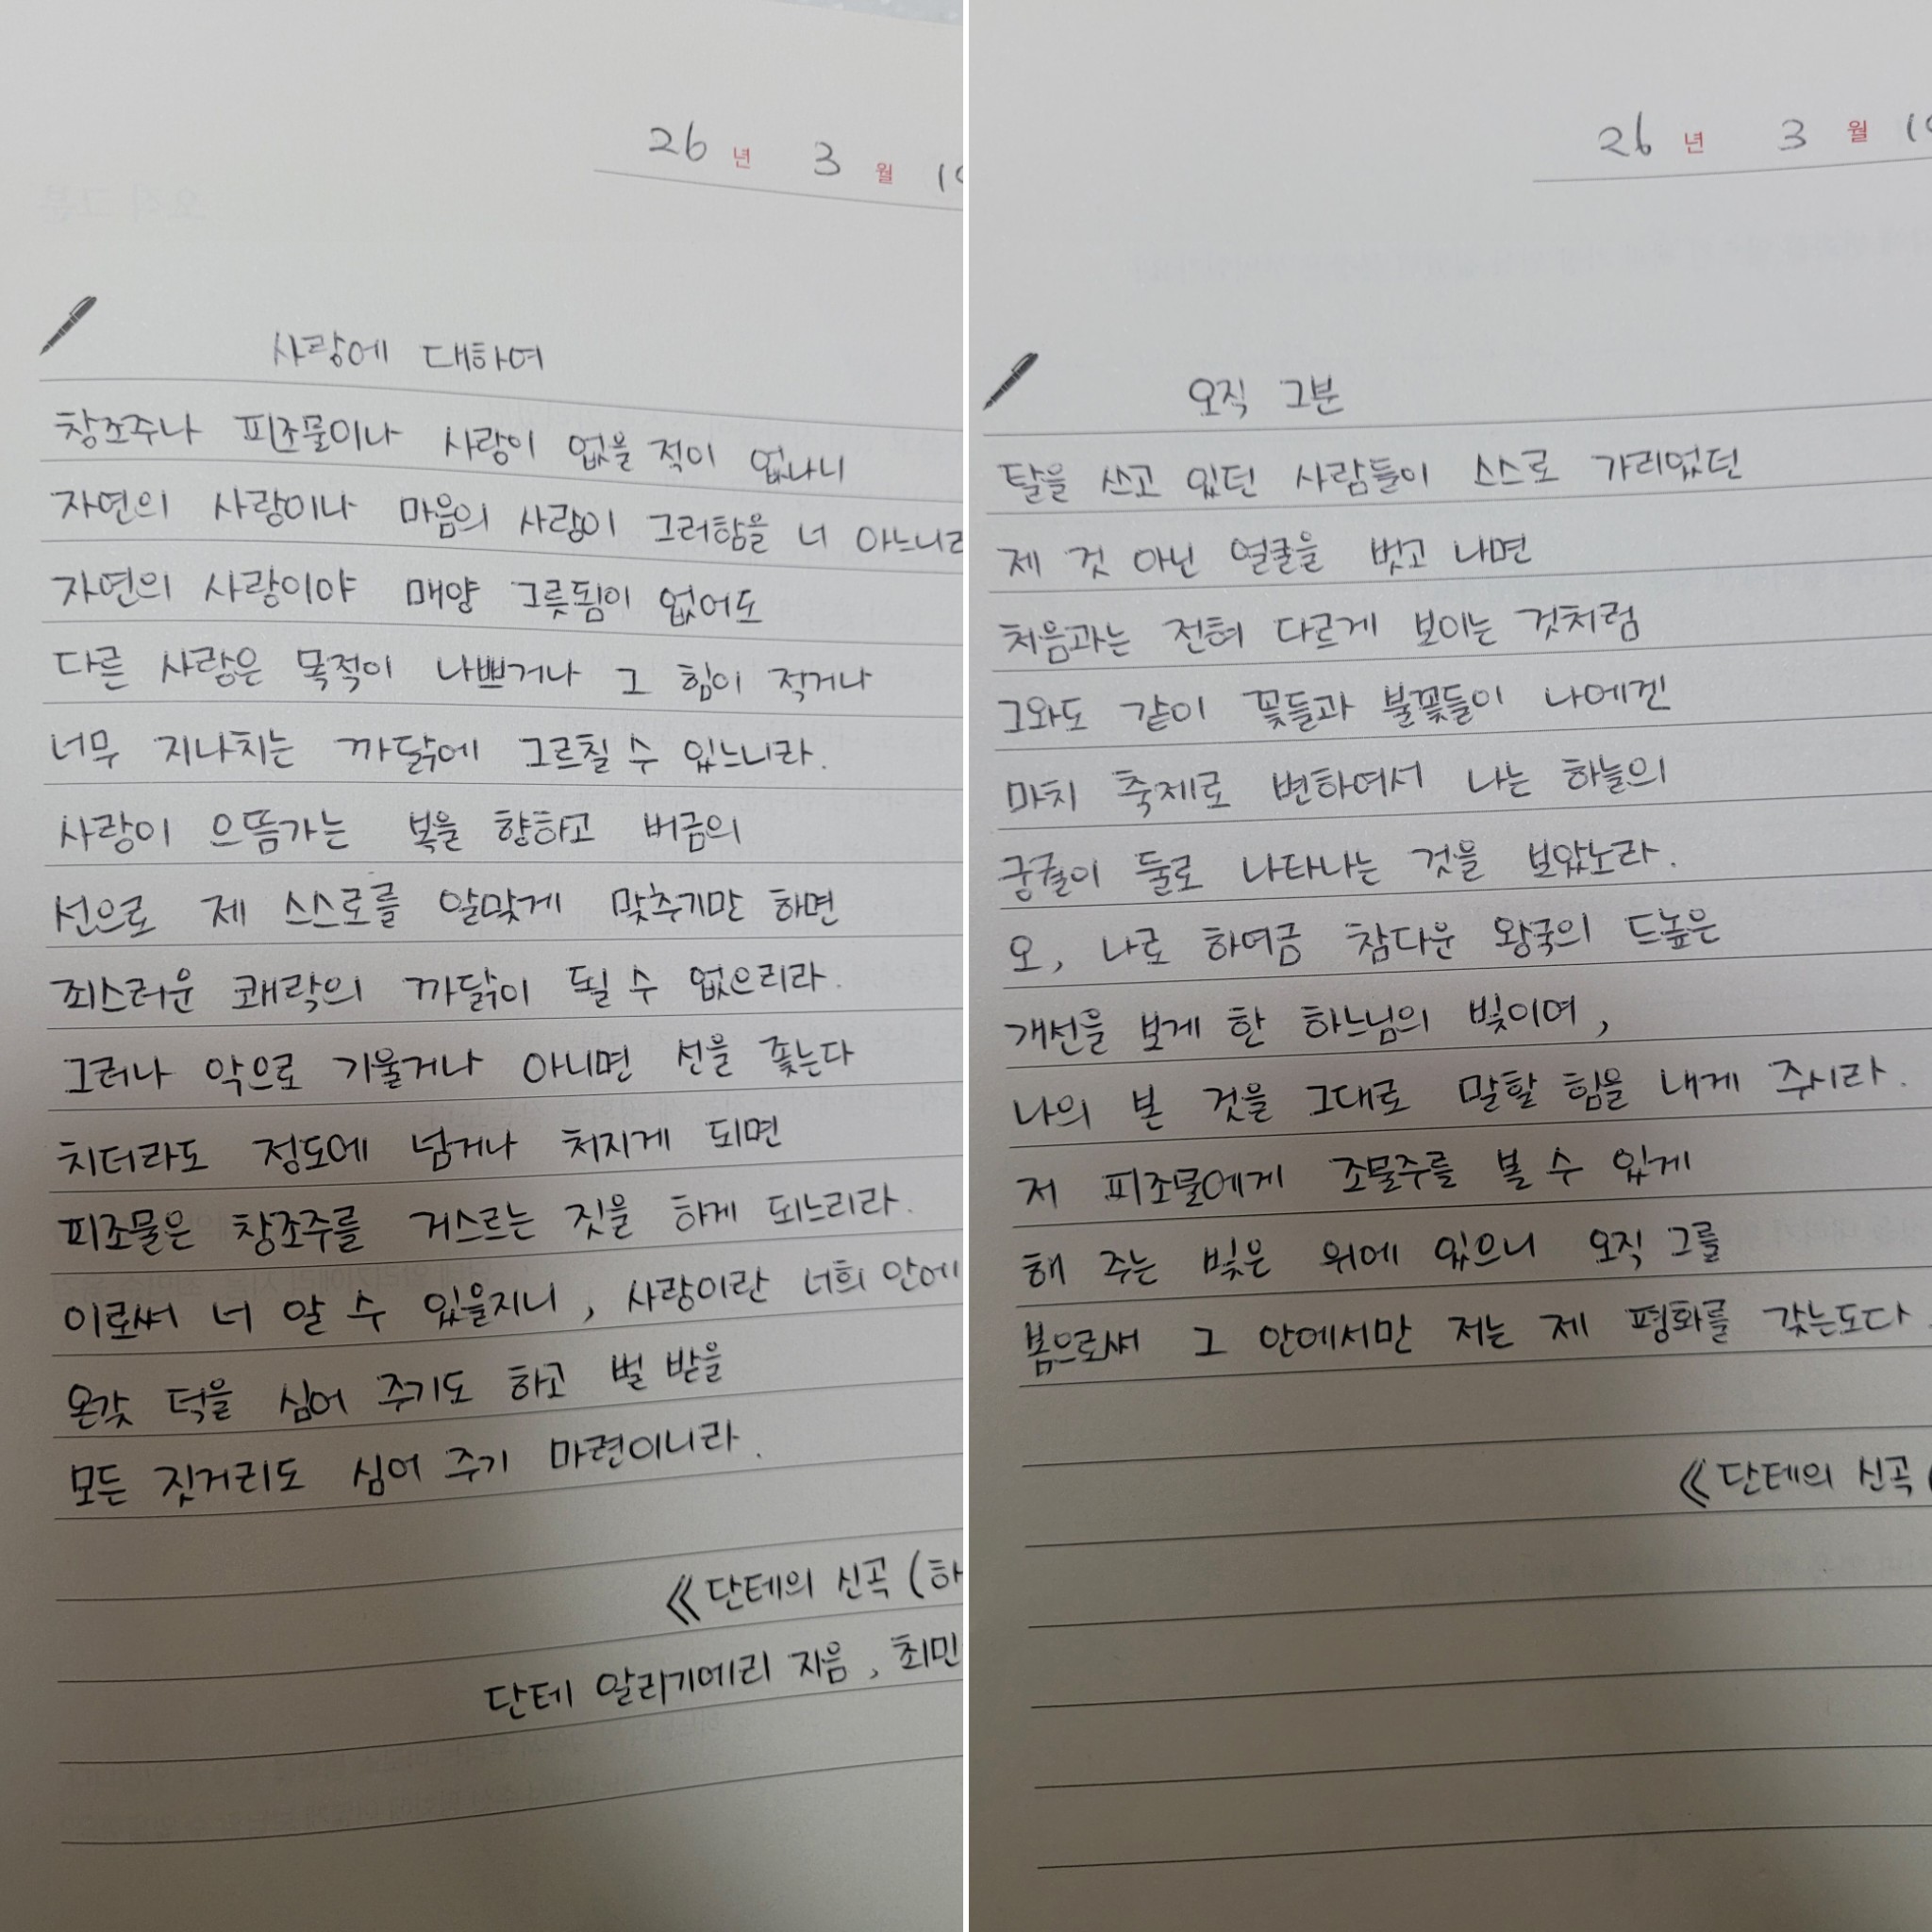 26 년 3 월
사랑에 대하여
창조주나 피조물이나 사랑이 없을 적이 없나니
자연의 사랑이나 마음의 사랑이 그러함을 너 아느니라
자연의 사랑이야 매양 그릇됨이 없어도
다른 사랑은 목적이 나쁘거나 그 힘이 적거나
너무 지나치는 까닭에 그르칠 수 있느니라.
사랑이 으뜸가는 복을 향하고 버금의
선으로 제 스스로를 알맞게 맞추기만 하면
죄스러운 쾌락의 까닭이 될 수 없으리라.
그러나 악으로 기울거나 아니면 선을 좇는다
치더라도 정도에 넘거나 처지게 되면
피조물은 창조주를 거스르는 짓을 하게 되느리라.
이로써 너 알 수 있을지니, 사랑이란 너희 안에
온갖 덕을 심어 주기도 하고 벌 받을
모든 짓거리도 심어 주기 마련이니라.
《단테의 신곡 (하
단테 알리기에리 지음, 최민
26 년 3 월
오직 그분
탈을 쓰고 있던 사람들이 스스로 가리었던
제 것 아닌 얼굴을 벗고 나면
처음과는 전혀 다르게 보이는 것처럼
그와도 같이 꽃들과 불꽃들이 나에겐
마치 축제로 변하여서 나는 하늘의
궁궐이 둘로 나타나는 것을 보았노라.
오, 나로 하여금 참다운 왕국의 드높은
개선을 보게 한 하느님의 빛이여,
나의 본 것을 그대로 말할 힘을 내게 주시라.
저 피조물에게 조물주를 볼 수 있게
해 주는 빛은 위에 있으니 오직 그를
봄으로써 그 안에서만 저는 제 평화를 갖는도다.
《단테의 신곡